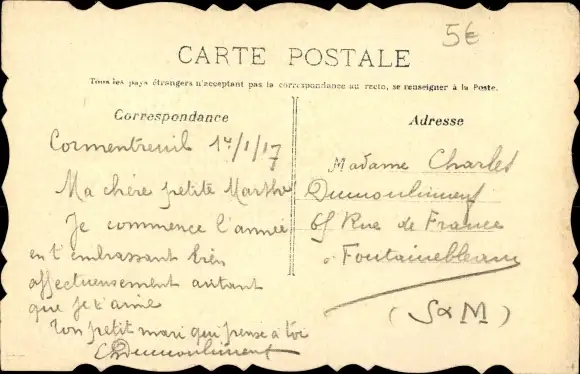 5€
CARTE POSTALE
Tous les pays étrangers n'acceptant pas la correspondance au recto, se renseigner à la Poste.
Correspondance
Cormentreuil 1er/1/17
Ma chère petite Marthe
Je commence l'année
en t'embrassant bien
affectueusement autant
que je t'aime
Ton petit mari qui pense à toi
Adresse
Madame Charles
Rue de France
à Fontainebleau
(S & M)